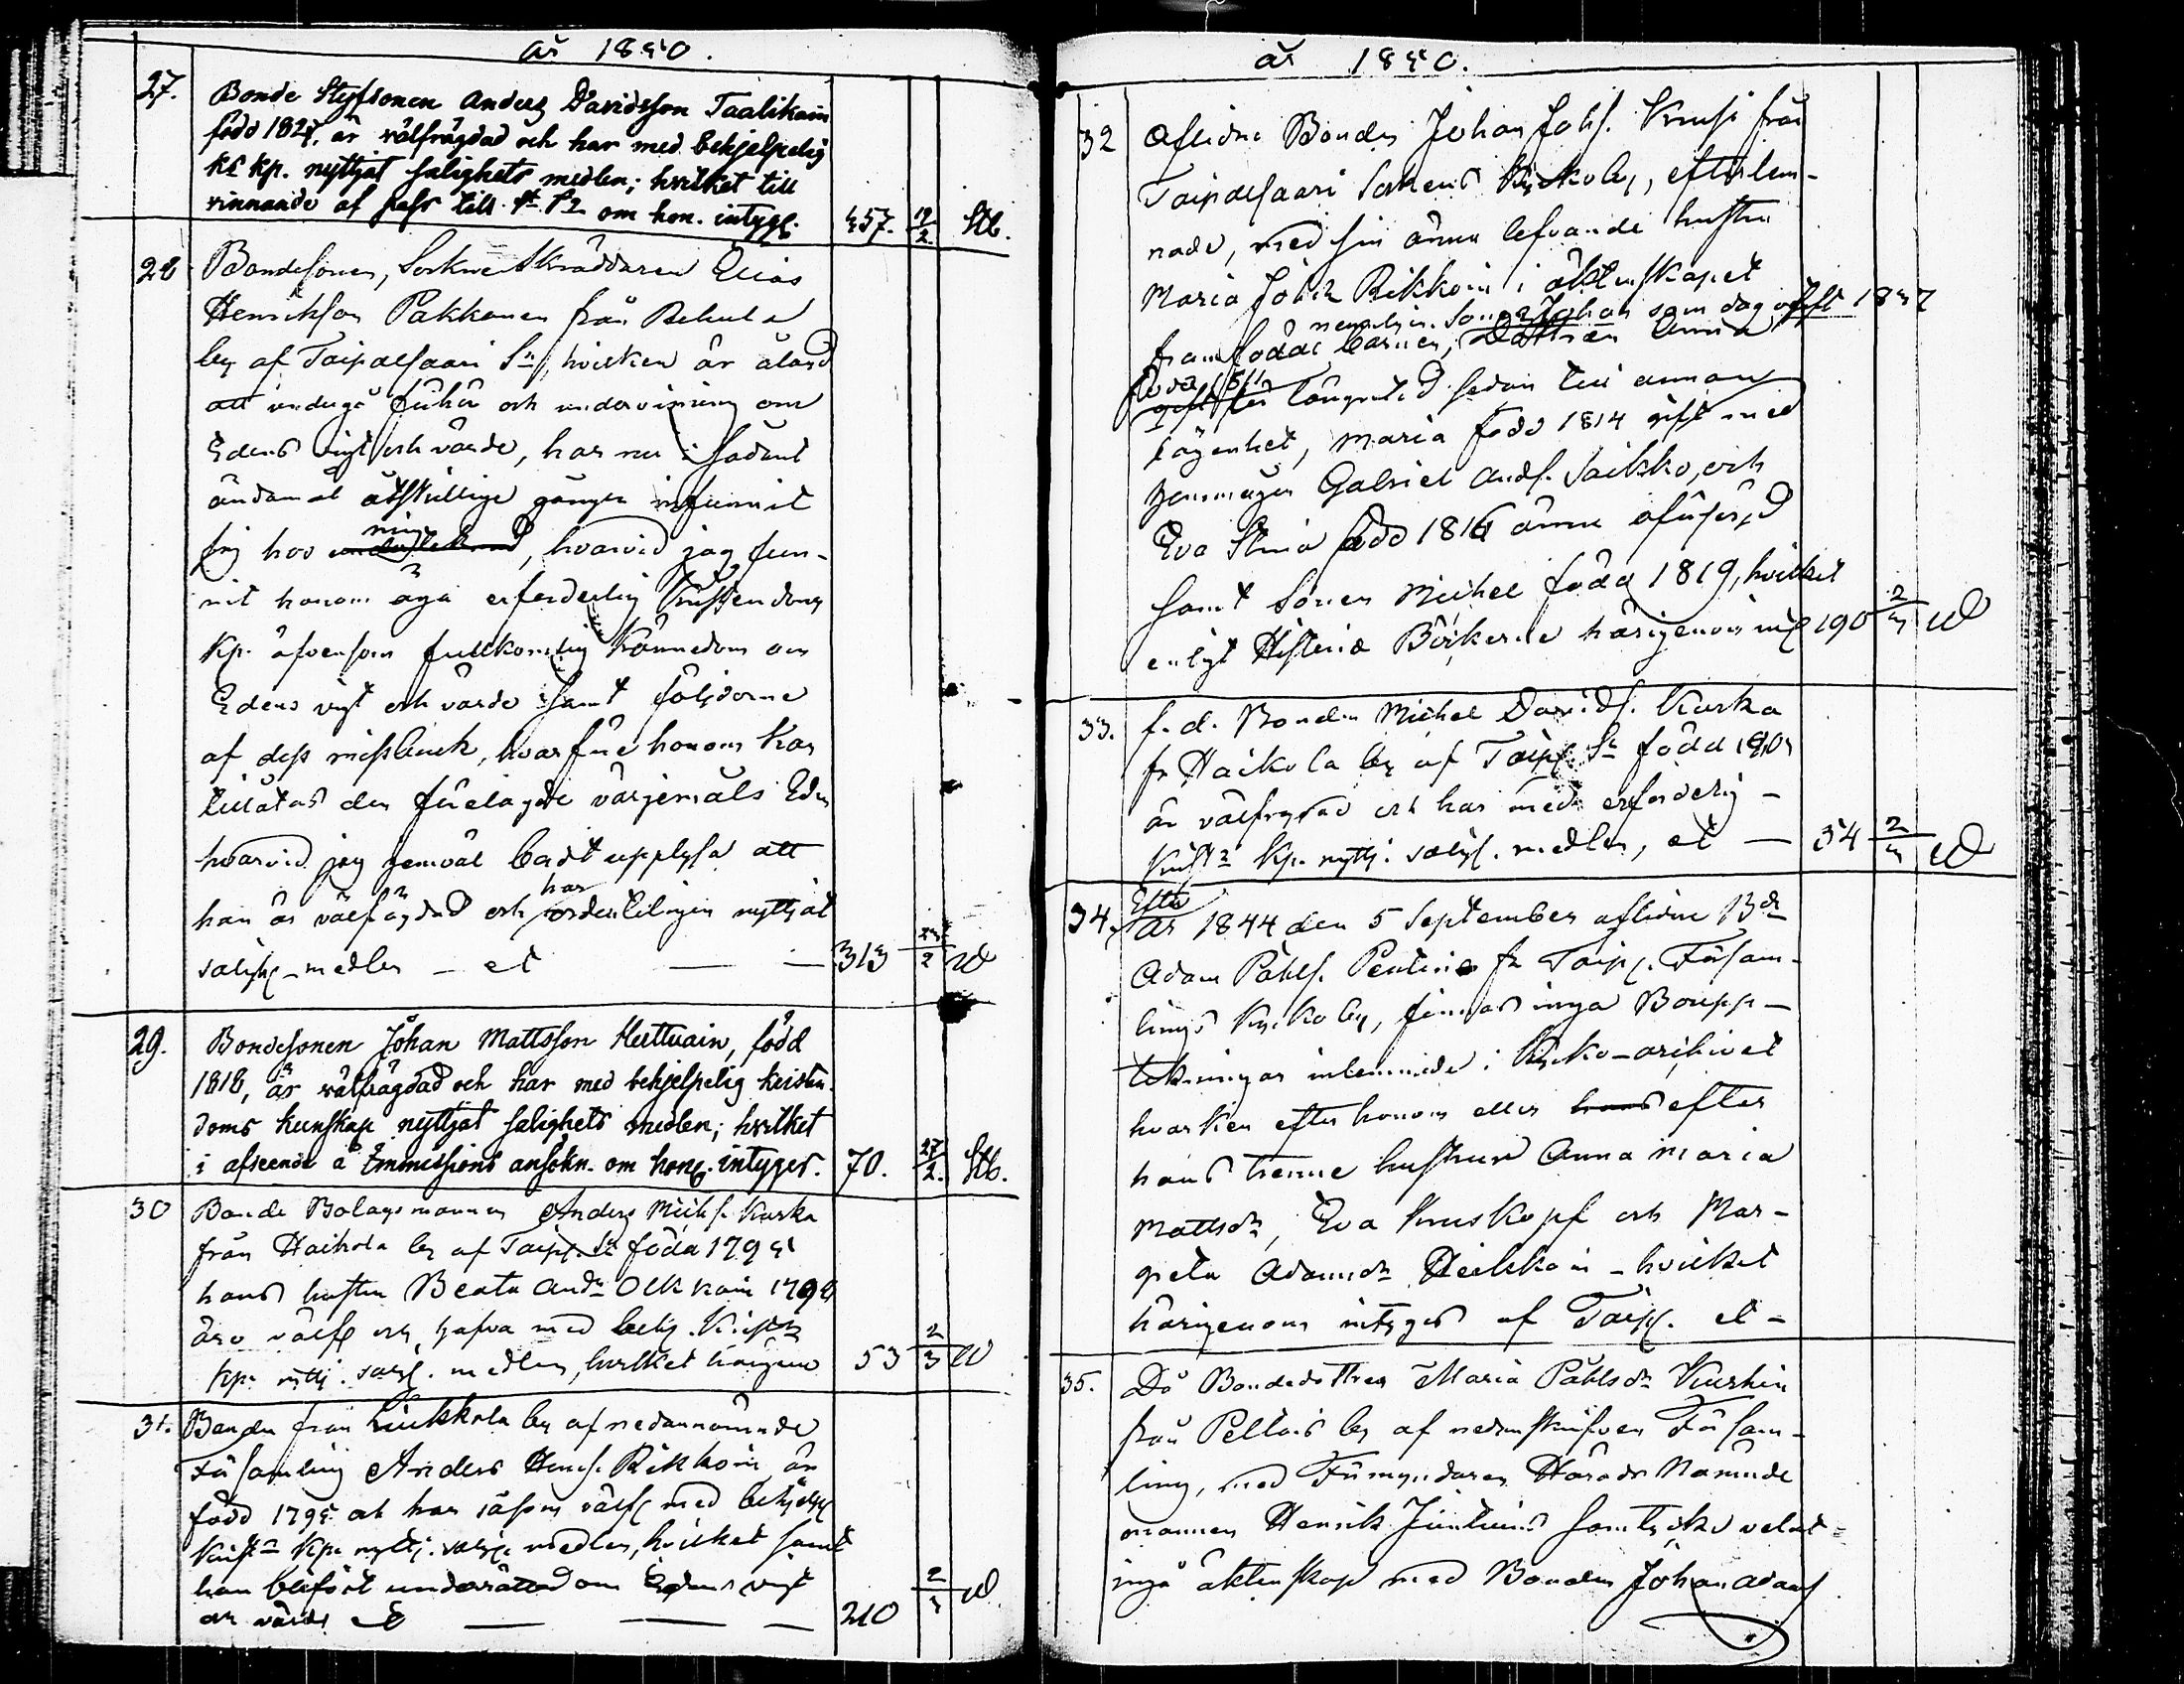 år 1850.
27. Bonde Styfsonen Anders Davidsson Taalikain
född 1827, är välfrägdad och har med behjelpelig
ks kp. nyttjat salighets medlen; hvilket till
vinnande af pass till St. P2 om hon. intyg.
457. 19/2. Stb.
28 Bondesonen, Sockne Skräddaren Elias
Henrikson Pakkanen från Rehula
by af Taipalsaari Sn, hvilken är ålagd
att undergå förhör och undervisning om
Edens vigt och värde, har nu i sådant
ändamål åtskillige gånger infunnit
sig hos mig, hvarvid jag fun-
nit honom äga erforderlig Kristendoms
Kp. äfvensom fullkomlig kännedom om
Edens vigt och värde samt följderne
af dess missbruk, hvarföre honom kan
tillåtas den förelagde värjemåls Eden
hvarvid jag jemväl bordt upplysa att
han är välfrägdad och har ordentligen nyttjat
salighs-medlen – et — — 313 2
29. Bondesonen Johan Mattsson Hurttuain, född
1818, är välfrägdad och har med behjelpelig kristen-
doms kunskap nyttjat salighets medlen; hvilket
i afseende å Emmissions ansökn. om hon. intyges. 70. 27/2. Stb.
30 Bonde Bolagsmannen Anders Michs. Kurka
från Haikola by af Taip. Sn född 1795
hans hustru Beata Andsdr Olkkain
äro välf och hafva med behj. Kristds
Kp. nyttj. salgs. medlen, hvilket härigenom 53 2/3
31. Bonden från Liukkola by af nedannämnde
Församling Anders Henrs. Rikkoin är
född 1795 och har såsom välf med behjelpl
Krist Kp. nyttj. salgs medlen, hvilket samt
han blifvit underrättad om Edens vigt
och värde et — — — 210 2/3
år 1850.
32 Aflidne Bonden Johan Johs. Krusi från
Taipalsaari Sockens Kyrkoby, efterlem-
nade, med sin ännu lefvande hustru
Maria Johsdr Rikkoin i äktenskapet
nemligen Sonen Johan som dog 1847
framfödde barnen, Dottren Anna
född 1811
gift för långtid sedan till annan
lägenhet, Maria född 1814 gift med
hemmågen Gabriel Ands. Saikko, och
Eva Stina född 1816 ännu ogift
samt Sonen Michel född 1819, hvilket
enligt Historie Böckerne härigenom int 190 2/3
33. f.d. Bonden Michel Davids. Kurka
fr Haikola by af Taip. Sn född
är välfrägdad och har med erforderlig –
Krist Kp. nyttj. salgs. medlen, et — 54 2/3
34. Efter
år 1844 den 5 September aflidne Bdn
Adam Påhls. Pentino fr Taip. Försam-
lings Kyrkoby, finnas inga Boupp-
teckningar inlemnade i Kyrko-arkivet
hvarken efter honom eller hans efter
hans trenne hustrur Anna Maria
Mattsdr, Eva Kruskopf och Mar-
greta Adamsdr Heikkoin – hvilket
härigenom intygas af Taip. et –
35. Då Bondedottren Maria Påhlsdr Kurkin
från Pellois by af nedanskrifven Försam-
ling, med Förmyndaren Härads Nämnde
mannen Henrik Juntuins samtycke velat
ingå äktenskap med Bonden Johan Adams